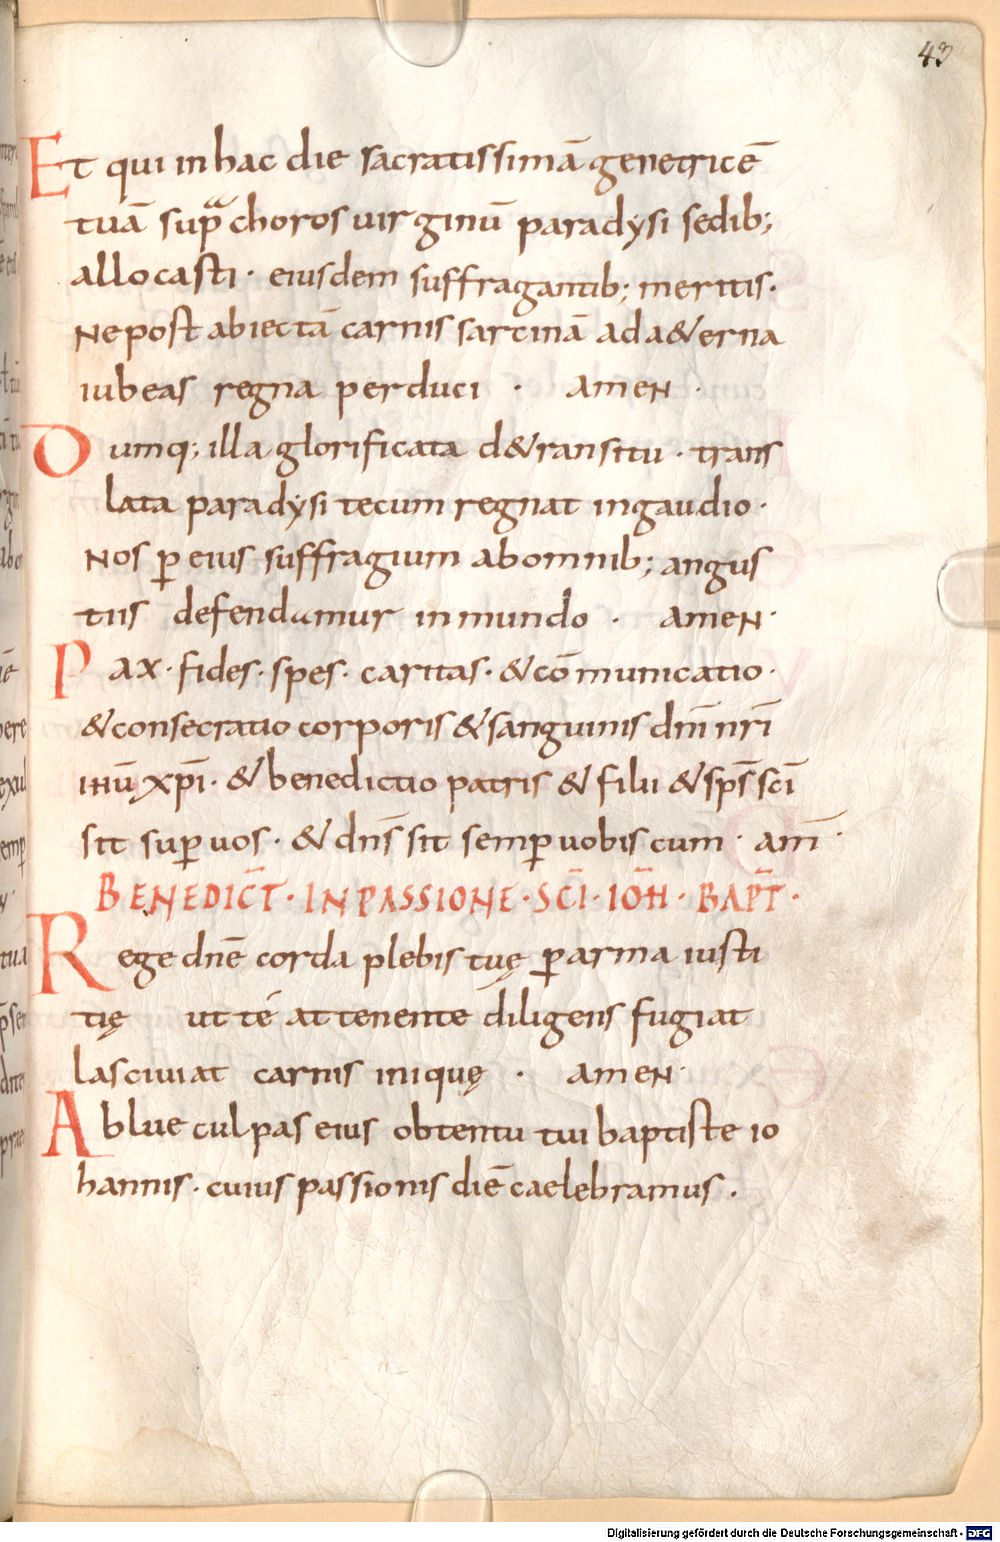 43
Et qui in hac die sacratissimā genetricē
tuā supᷓ choros uirginū paradysi sedib;
allocasti · eiusdem suffragantib; meritis ·
Ne post abiectā carnis sarcinā ad a&erna
iubeas regna perduci · amen ·
Dumq; illa glorificata d& ransitu · trans
lata paradysi tecum regnat in gaudio ·
Nos ꝑ eius suffragium ab omnib; angus
tiis defendamur in mundo · amen ·
Pax · fides · spes · caritas · & cōmunicatio ·
& consecratio corporis & sanguinis dn̄i nr̄i
ihū xp̄i · & benedictio patris & filii & sps̄ sc̄i
sit suꝑ uos · & dn̄s sit semꝑ uobiscum · am̄ ·
BENEDIC̄T · IN PASSIONE · SC̄I · IOH̄ · BAP̄T ·
Rege dn̄e corda plebis tuę ꝑ arma iusti
tię ut té attenente diligens fugiat
lasciuiat carnis inique̜ · amen ·
Ablue culpas eius obtentu tui baptiste io
hannis · cuius passionis diē caelebramus ·
Digitalisierung gefördert durch die Deutsche Forschungsgemeinschaft - DFG